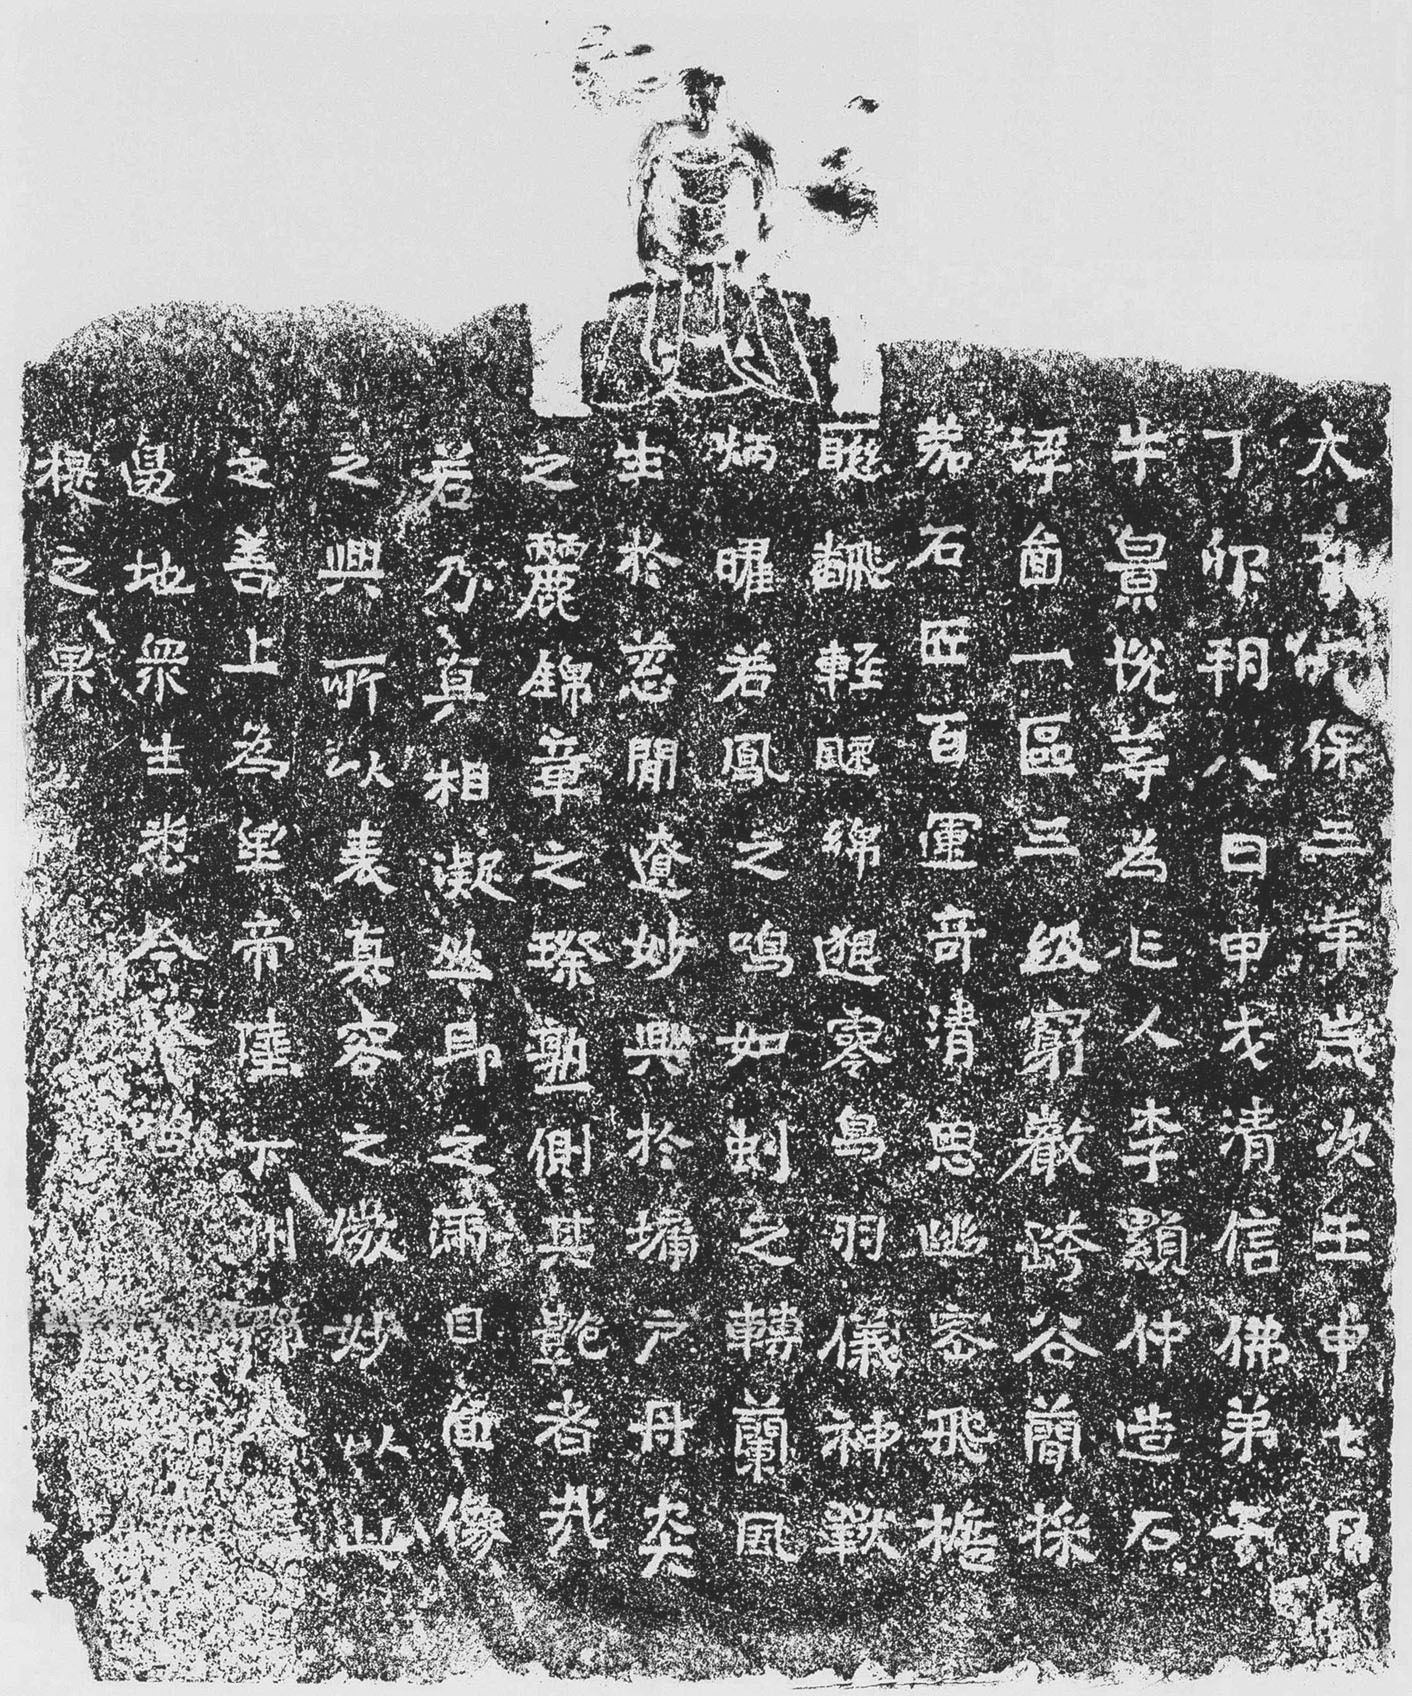 大齊天保三年歲次壬申七月
丁卯朔八日甲戌清信佛弟子
牛景悅等為亡人李顯仲造石
浮啚一區三級窮巖跨谷簡採
若石匠百運奇清思幽密飛檐
輕颸綿邈零鳥羽儀神歡
炳曜若鳳之鳴如虯之轉蘭風
生於慈閒遼妙興於墉戶丹炎
之麗錦章之璨塾側其龕者哉
若乃真相凝丛身之滿自啚像
之興所以表真容之儀妙以此
之善上為皇帝陛下州郡令
邊地眾生悉令
極之果